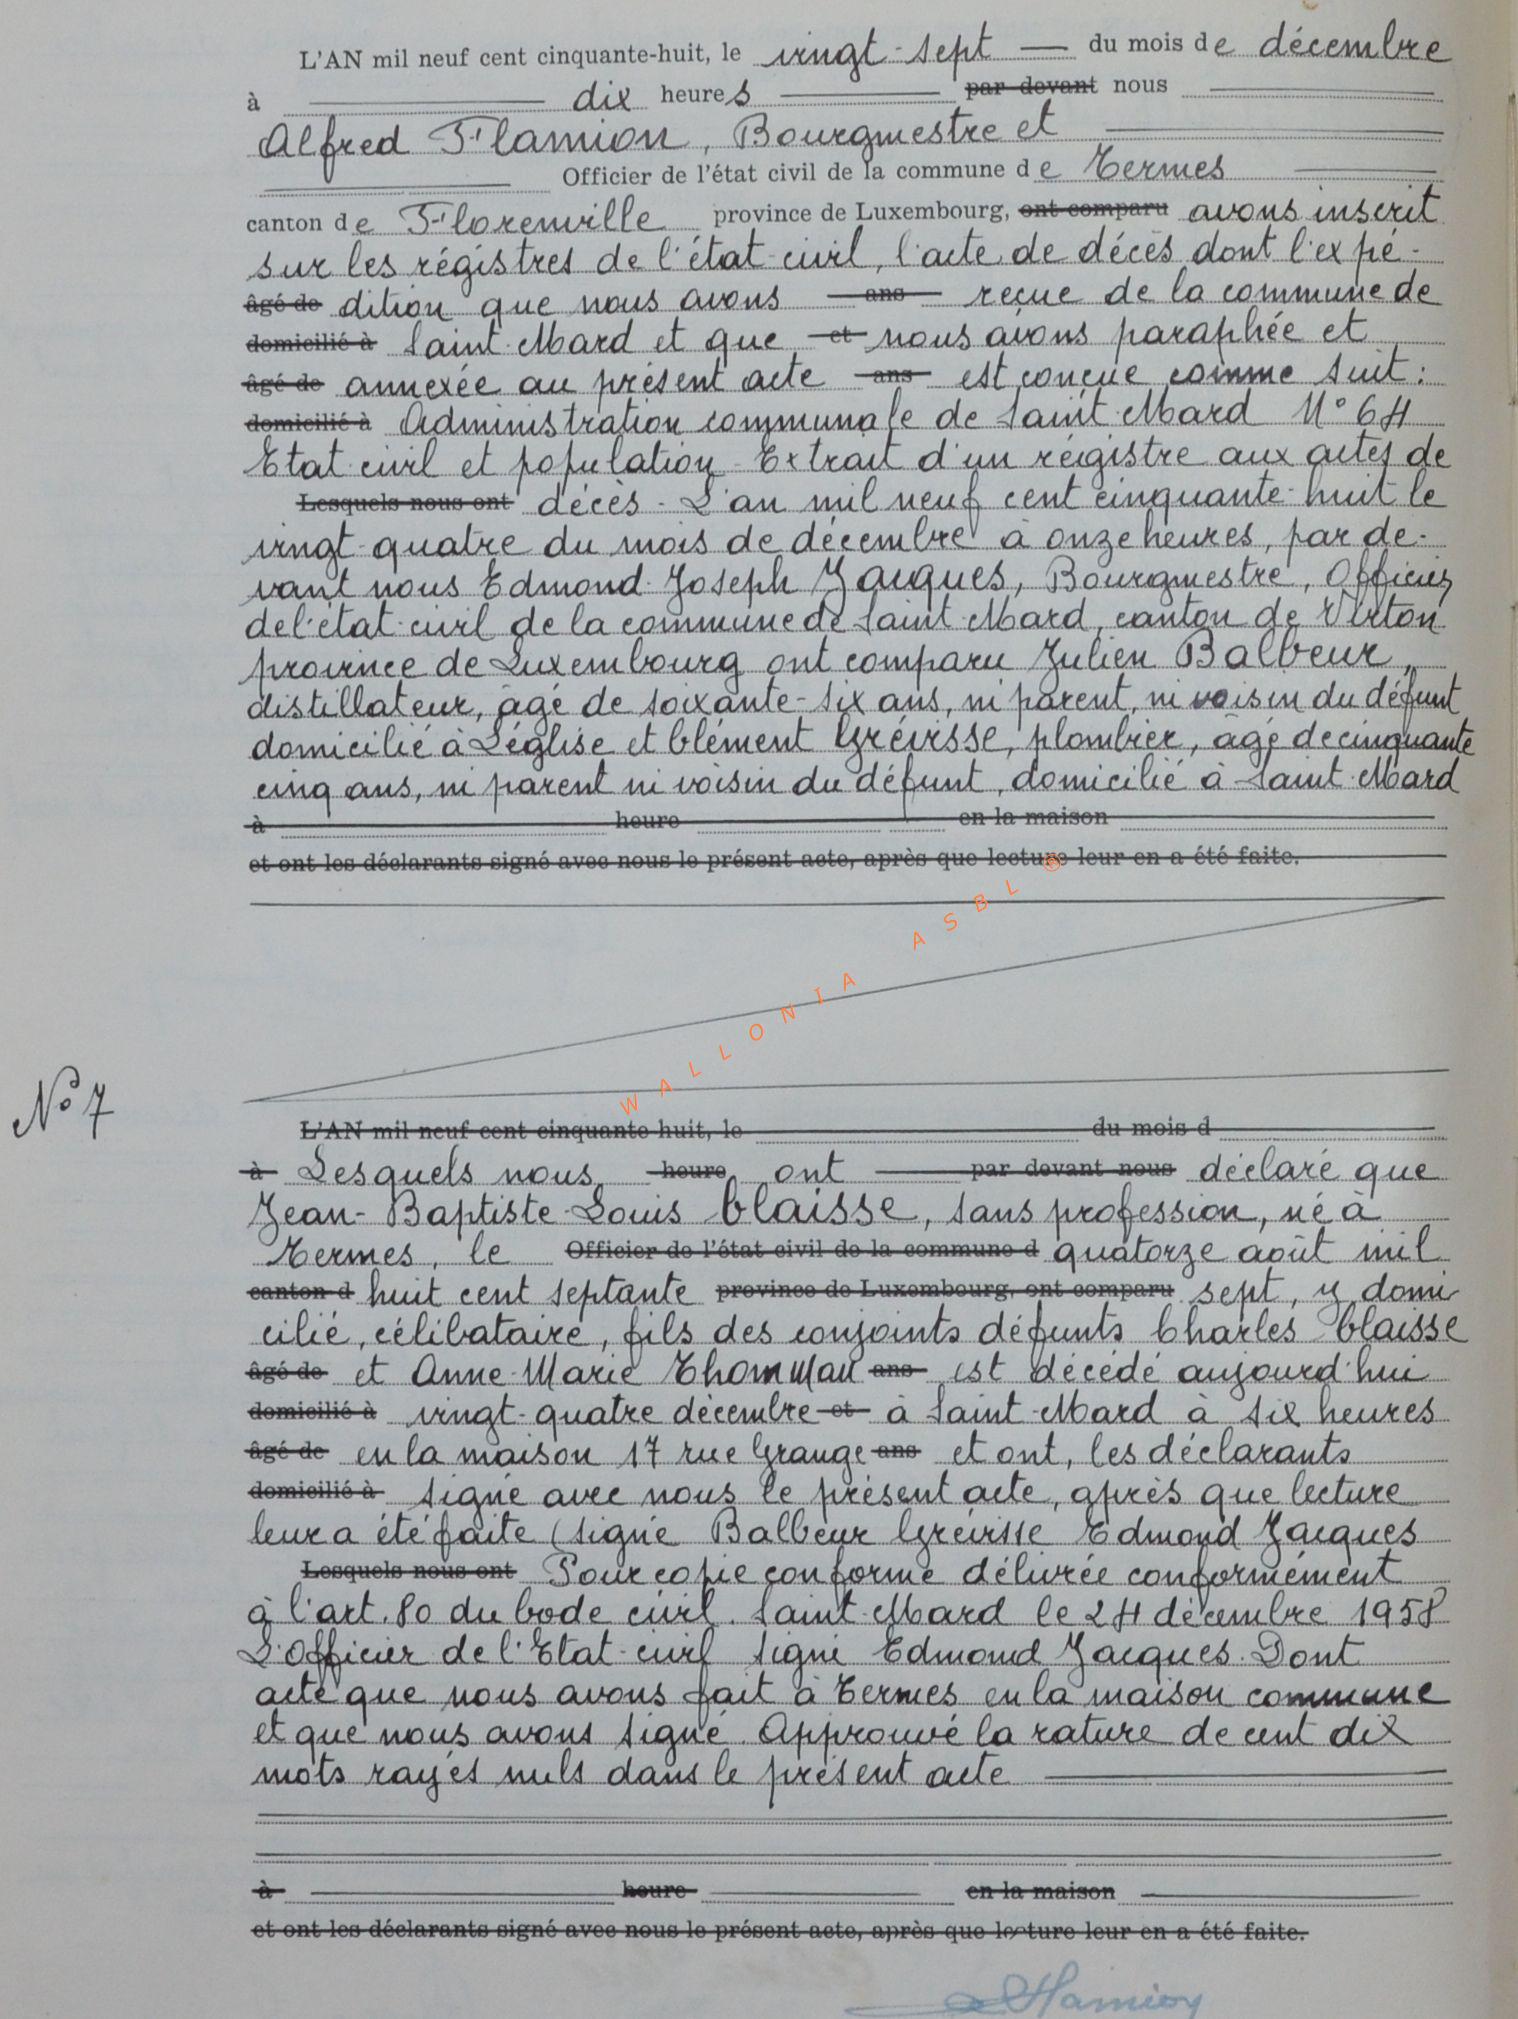 L'AN mil neuf cent cinquante-huit, le vingt-sept du mois de décembre
à dix heures par devant nous
Alfred Flamion, Bourgmestre et
Officier de l'état civil de la commune de Termes
canton de Florenville province de Luxembourg, ont comparu avons inscrit
sur les régistres de l'état-civil, l'acte de décès dont l'expé-
âgé de dition que nous avons ans reçue de la commune de
domicilié à Saint-Mard et que et nous avons paraphée et
âgé de annexée au présent acte ans est conçue comme suit :
domicilié à Administration communale de Saint-Mard N° 64
Etat-civil et population - Extrait d'un régistre aux actes de
Lesquels nous ont décès - L'an mil neuf cent cinquante-huit le
vingt-quatre du mois de décembre à onze heures, par de-
vant nous Edmond-Joseph Jacques, Bourgmestre, Officier
de l'état-civil de la commune de Saint-Mard, canton de Virton
province de Luxembourg ont comparu Julien Balbeur,
distillateur, âgé de soixante-six ans, ni parent, ni voisin du défunt
domicilié à Léglise et Clément Grévisse, plombier, âgé de cinquante
cinq ans, ni parent ni voisin du défunt, domicilié à Saint-Mard
à heure en la maison
et ont les déclarants signé avec nous le présent acte, après que lecture leur en a été faite.
WALLONIA ASBL ®
N° 7
L'AN mil neuf cent cinquante-huit, le du mois d
à Lesquels nous heure ont par devant nous déclaré que
Jean-Baptiste-Louis Claisse, sans profession, né à
Termes, le Officier de l'état civil de la commune d quatorze août mil
canton d huit cent septante province de Luxembourg, ont comparu sept, y domi
cilié, célibataire, fils des conjoints défunts Charles Claisse
âgé de et Anne-Marie Thomman ans est décédé aujourd'hui
domicilié à vingt-quatre décembre et à Saint-Mard à six heures
âgé de en la maison 17 rue Grange ans et ont, les déclarants
domicilié à signé avec nous le présent acte, après que lecture
leur a été faite (signé Balbeur Grévisse Edmond Jacques
Lesquels nous ont Pour copie conforme délivrée conformément
à l'art. 80 du Code civil. Saint-Mard le 24 décembre 1958
L'Officier de l'Etat-civil signé Edmond Jacques. Dont
acte que nous avons fait à Termes en la maison commune
et que nous avons signé. Approuvé la rature de cent dix
mots rayés nuls dans le présent acte
à heure en la maison
et ont les déclarants signé avec nous le présent acte, après que lecture leur en a été faite.
AFlamion